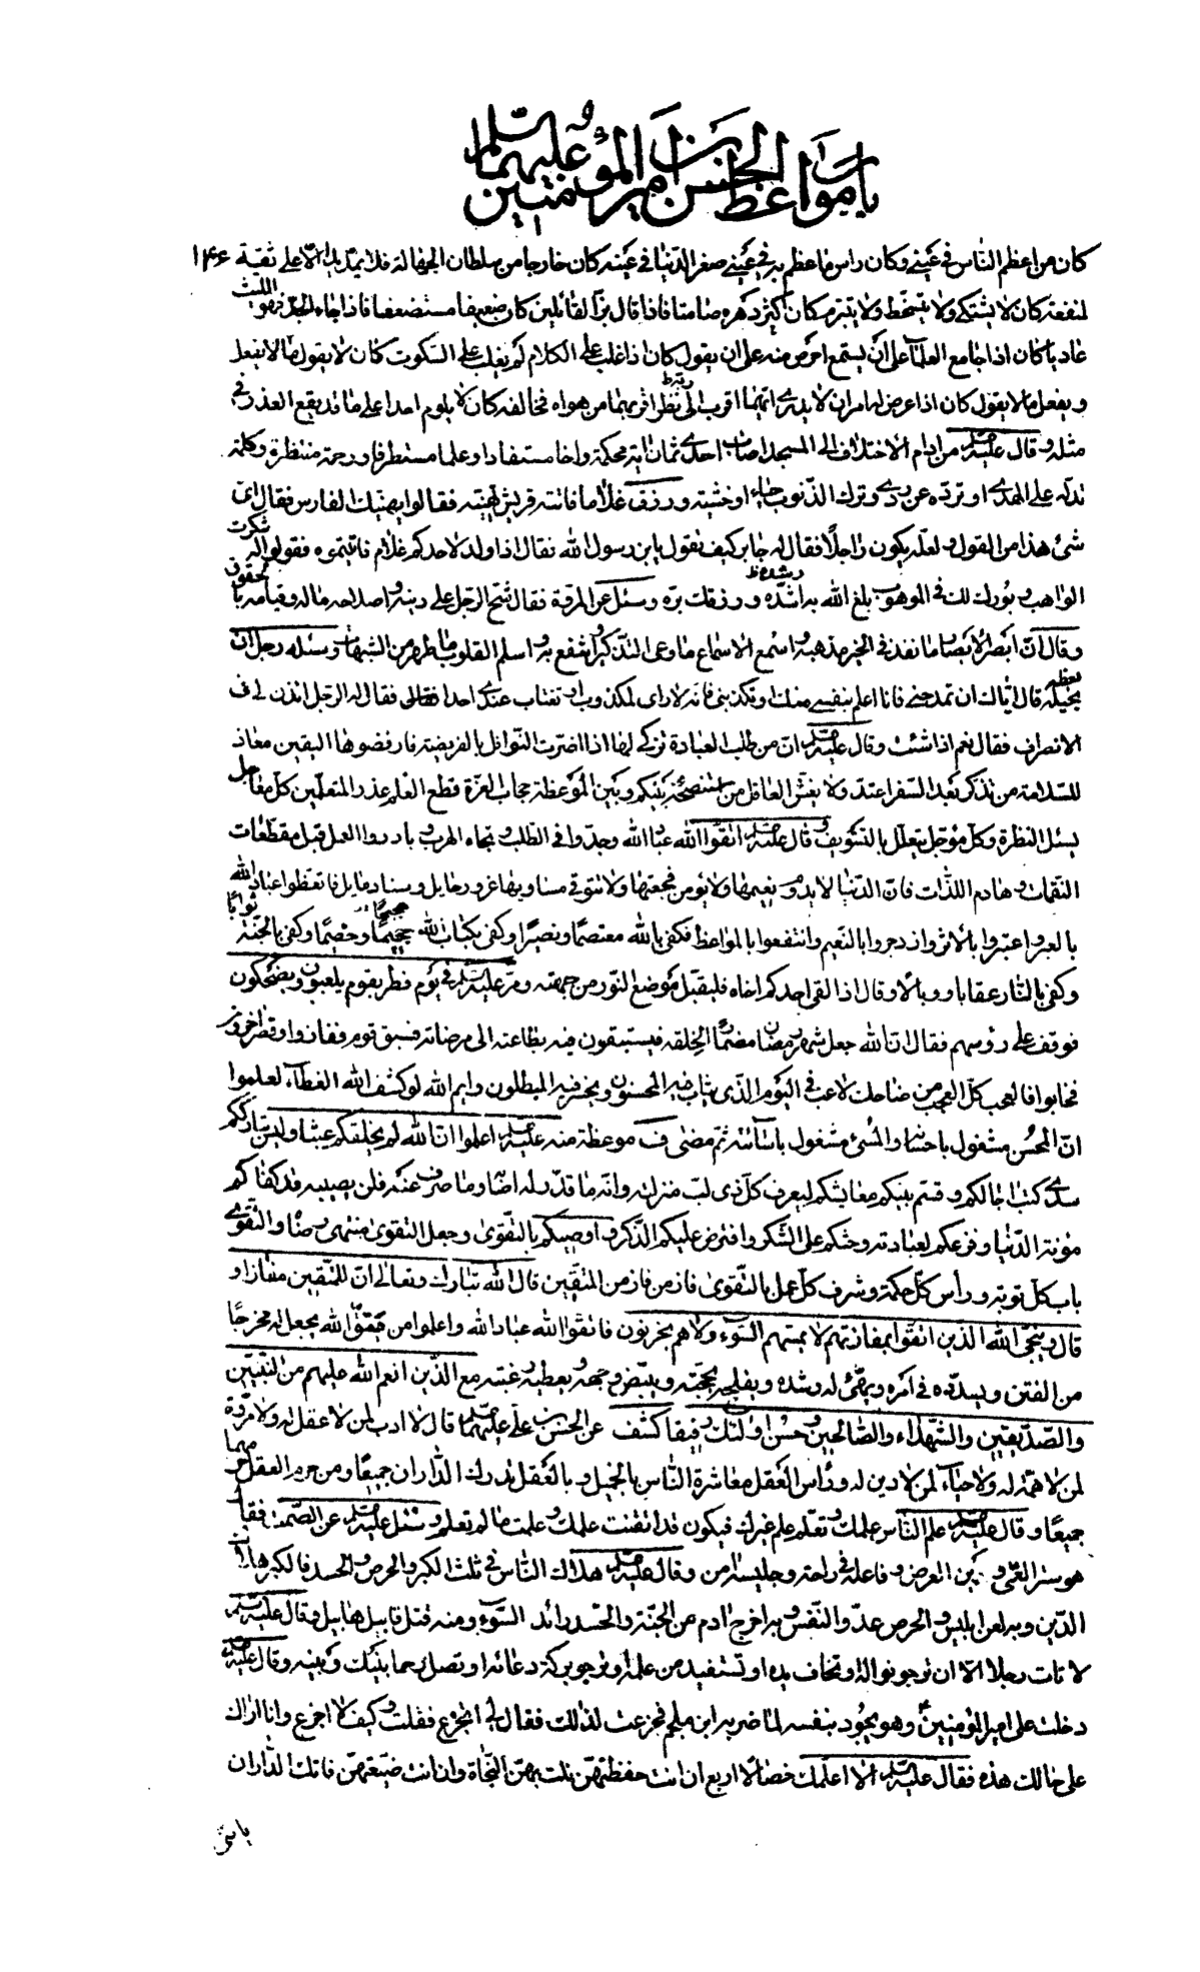 باب مواعظ الحسن بن امير المؤمنين عليهما السلم
كان من اعظم الناس في عيني وكان راس ما عظم به في عيني صغر الدنيا في عينه كان خارجا من سلطان الجهالة فلا يمد يدا الا على ثقة ١٤۶
لمنفعة كان لا يشتكي ولا يتسخط ولا يتبرم كان اكثر دهره صامتا فاذا قال بذ القائلين كان ضعيفا مستضعفا فاذا جاء الجد فهو الليث
عاديا كان اذا جامع العلماء على ان يستمع احرص منه على ان يقول كان اذا غلب على الكلام لم يغلب على السكوت كان لا يقول ما لا يفعل
ويفعل ما لا يقول كان اذا عرض له امران لا يدري ايهما اقرب الى ربه نظر اقربهما من هواه فخالفه كان لا يلوم احدا على ما قد يقع العذر في
مثله وقال عليه السلم من ادام الاختلاف الى المسجد اصاب احدى ثمان اية محكمة واخا مستفادا وعلما مستطرفا ورحمة منتظرة وكلمة
تدله على الهدى او ترده عن ردى وترك الذنوب حياء او خشية ورزق غلاما فاتته قريش تهنيه فقالوا يهنيك الفارس فقال اى
شئ هذا من القول ولعله يكون راجلا فقال له جابر كيف نقول يا بن رسول الله فقال اذا ولد لاحدكم غلام فاتيتموه فقولوا له شكرت
الواهب وبورك لك في الموهوب بلغ الله به اشده ورزقك بره وسئل عن المروة فقال شح الرجل على دينه واصلاحه ماله وقيامه بالحقوق
وقال ان ابصر الابصار ما نفذ في الخير مذهبه واسمع الاسماع ما وعى التذكير وانتفع به واسلم القلوب ما طهر من الشبهات وسئله رجل ان
يخيله قال اياك ان تمدحني فانا اعلم بنفسي منك او تكذبني فانه لا راى لمكذوب او تغتاب عندي احدا فقال له الرجل ائذن لي في
الانصراف فقال نعم اذا شئت وقال عليه السلم ان من طلب العبادة تزكى لها اذا اضرت النوافل بالفريضة فارفضوها اليقين معاذ
للسلامة من تذكر بعد السفر اعتد ولا يغش العاقل من استنصحه بينكم وبين الموعظة حجاب العزة قطع العلم عذر المتعلمين كل معاجل
يسئل النظرة وكل مؤجل يتعلل بالتسويف وقال عليه السلم اتقوا الله عباد الله وجدوا في الطلب وتجاه الهرب وبادروا العمل قبل مقطعات
النقمات وهادم اللذات فان الدنيا لا يدوم نعيمها ولا يؤمن فجيعها ولا تتوقى مساويها غرور حايل وسناد مايل فاتعظوا عباد الله
بالعبر واعتبروا بالاثر وازدجروا بالنعيم وانتفعوا بالمواعظ فكفى بالله معتصما ونصيرا وكفى بكتاب الله حجيجا وخصيما وكفى بالجنة ثوابا
وكفى بالنار عقابا ووبالا وقال اذا لقى احدكم اخاه فليقبل موضع النور من جبهته ومر عليه السلم في يوم فطر بقوم يلعبون ويضحكون
فوقف على رؤسهم فقال ان الله جعل شهر رمضان مضمارا لخلقه فيستبقون فيه بطاعته الى مرضاته فسبق قوم ففازوا وقصر اخرون
فخابوا فالعجب كل العجب من ضاحك لاعب في اليوم الذي يثاب فيه المحسنون ويخسر فيه المبطلون وايم الله لو كشف الله الغطاء لعلموا
ان المحسن مشغول باحسانه والمسئ مشغول باساءته ثم مضى ف موعظة منه عليه السلم اعلموا ان الله لم يخلقكم عبثا وليس بتارككم
سدى كتب اجالكم وقسم بينكم معايشكم ليعرف كل ذى لب منزلته وانه ما قدر له اصابه وما صرف عنه فلن يصيبه قد كفاكم
مؤنة الدنيا وفرغكم لعبادته وحثكم على الشكر وافترض عليكم الذكر واوصيكم بالتقوى وجعل التقوى منتهى رضاه والتقوى
باب كل توبة وراس كل حكمة وشرف كل عمل بالتقوى فاز من فاز من المتقين قال الله تبارك وتعالى ان للمتقين مفازا و
قال وينجى الله الذين اتقوا بمفازتهم لا يمسهم السوء ولا هم يحزنون فاتقوا الله عباد الله واعلموا من يتق الله يجعل له مخرجا
من الفتن ويسدده في امره ويهيئ له رشده ويفلجه بحجته ويبيض وجهه ويعطيه رغبته مع الذين انعم الله عليهم من النبيين
والصديقين والشهداء والصالحين وحسن اولئك رفيقا كشف عن الحسن بن علي عليهما السلم قال لا ادب لمن لا عقل له ولا مروة
لمن لا همة له ولا حياء لمن لا دين له وراس العقل معاشرة الناس بالجميل وبالعقل تدرك الداران جميعا ومن حرم العقل حرمهما
جميعا وقال عليه السلم علم الناس علمك وتعلم علم غيرك فيكون قد اتقنت علمك وعلمت ما لم تعلم وسئل عليه السلم عن الصمت فقال
هو ستر الغى وزين العرض وفاعله في راحة وجليسه امن وقال عليه السلم هلاك الناس في ثلث الكبر والحرص والحسد فالكبر هلاك
الدين وبه لعن ابليس والحرص عدو النفس وبه اخرج ادم من الجنة والحسد رائد السوء ومنه قتل قابيل هابيل وقال عليه السلم
لا تات رجلا الا ان ترجو نواله وتخاف يده او تستفيد من علمه او ترجو بركة دعائه او تصل رحما بينك وبينه وقال عليه السلم
دخلت على امير المؤمنين وهو يجود بنفسه لما ضربه ابن ملجم فجزعت لذلك فقال لي اتجزع فقلت وكيف لا اجزع وانا اراك
على حالك هذه فقال عليه السلم الا اعلمك خصالا اربع ان انت حفظتهن نلت بهن النجاة وان انت ضيعتهن فاتك الداران
يا بني